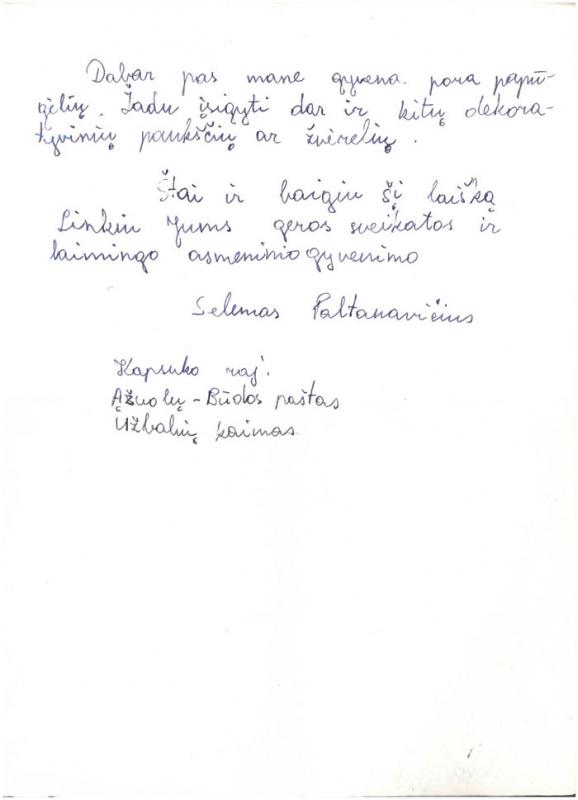 Dabar pas mane gyvena pora papū-
gėlių. Žadu įsigyti dar ir kitų dekora-
tyvinių paukščių ar žvėrelių.
Štai ir baigiu šį laišką
Linkiu Jums geros sveikatos ir
laimingo asmeninio gyvenimo
Selemas Paltanavičius
Kapsuko raj.
Ąžuolų-Būdos paštas
Užbalių kaimas